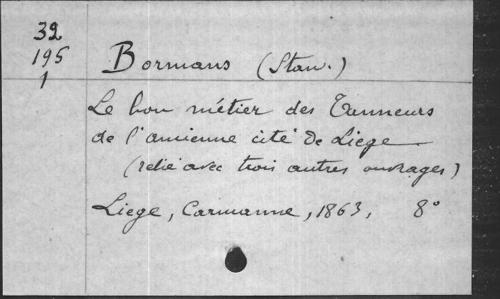 32
195
1
Bormans (Stan.)
Le bon métier des Tanneurs
de l'ancienne cité de Liege
(relié avec trois autres ouvrages)
Liege, Carmanne, 1863, 8°